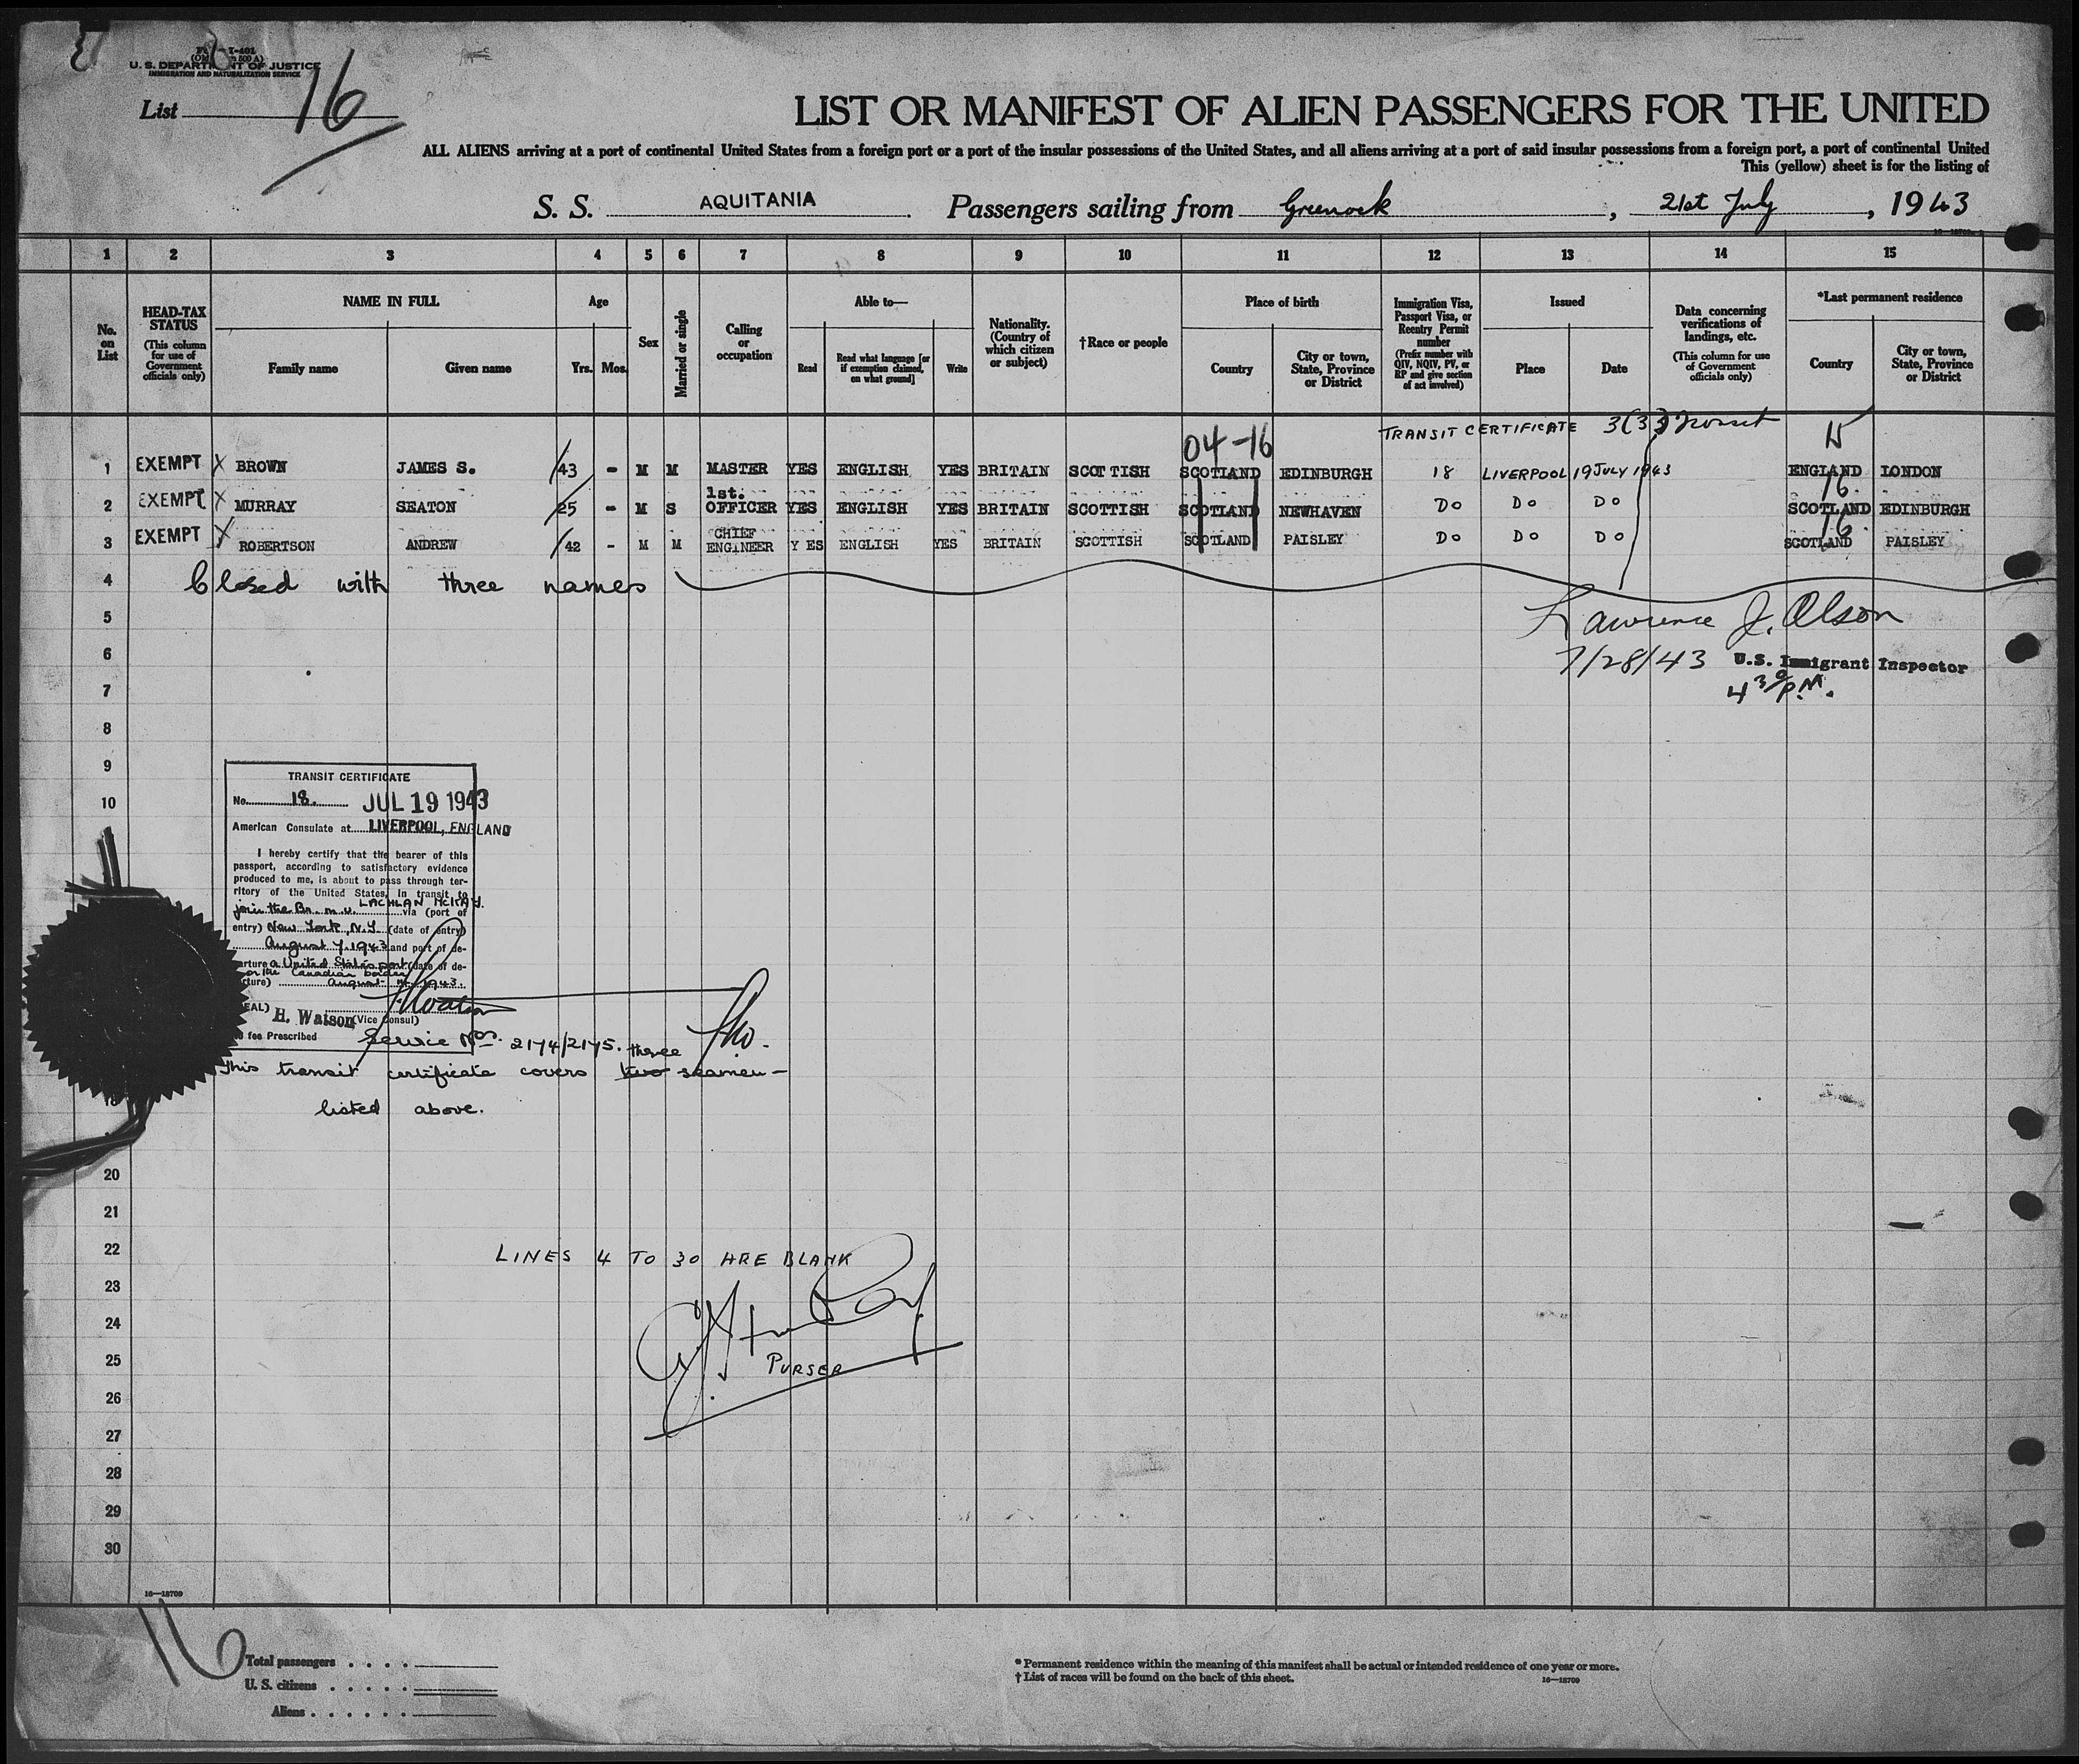 U. S. DEPARTMENT OF JUSTICE
IMMIGRATION AND NATURALIZATION SERVICE
List 16
LIST OR MANIFEST OF ALIEN PASSENGERS FOR THE UNITED
ALL ALIENS arriving at a port of continental United States from a foreign port or a port of the insular possessions of the United States, and all aliens arriving at a port of said insular possessions from a foreign port, a port of continental United
This (yellow) sheet is for the listing of
S. S. AQUITANIA Passengers sailing from Greenock, 21st July, 1943
1 2 3 4 5 6 7 8 9 10 11 12 13 14 15
No. on List
HEAD-TAX STATUS (This column for use of Government officials only)
NAME IN FULL Family name Given name
Age Yrs. Mos.
Sex
Married or single
Calling or occupation
Able to— Read Read what language [or if exemption claimed, on what ground] Write
Nationality. (Country of which citizen or subject)
†Race or people
Place of birth Country City or town, State, Province or District
Immigration Visa, Passport Visa, or Reentry Permit number (Prefix number with QIV, NQIV, PV, or RP and give section of act involved)
Issued Place Date
Data concerning verifications of landings, etc. (This column for use of Government officials only)
*Last permanent residence Country City or town, State, Province or District
04-16 TRANSIT CERTIFICATE 3(3) Transit 15
1 EXEMPT X BROWN JAMES S. 43 - M M MASTER YES ENGLISH YES BRITAIN SCOTTISH SCOTLAND EDINBURGH 18 LIVERPOOL 19 JULY 1943 ENGLAND LONDON
16
2 EXEMPT X MURRAY SEATON 25 - M S 1st. OFFICER YES ENGLISH YES BRITAIN SCOTTISH SCOTLAND NEWHAVEN DO DO DO SCOTLAND EDINBURGH
16
3 EXEMPT X ROBERTSON ANDREW 42 - M M CHIEF ENGINEER YES ENGLISH YES BRITAIN SCOTTISH SCOTLAND PAISLEY DO DO DO SCOTLAND PAISLEY
4 Closed with three names
5 Lawrence J. Olson
6 7/28/43 U.S. Immigrant Inspector
7 4 30 P.M.
8
9
TRANSIT CERTIFICATE
10 No. 18. JUL 19 1943
American Consulate at LIVERPOOL, ENGLAND
I hereby certify that the bearer of this
passport, according to satisfactory evidence
produced to me, is about to pass through ter-
ritory of the United States, in transit to
join the Br. m.v. LACHLAN McKAY. via (port of
entry) New York, N.Y. (date of entry)
August 7, 1943 and port of de-
arture a United States port (date of de-
or the Canadian border
ture) August 1943.
EAL) H. Watson (Vice Consul)
fee Prescribed
Service Nos. 2174/2175.
This transit certificate covers two three seamen -
listed above.
20
21
22 LINES 4 TO 30 ARE BLANK
23
24
25 PURSER
26
27
28
29
30
16—18709
16
Total passengers
U. S. citizens
Aliens
* Permanent residence within the meaning of this manifest shall be actual or intended residence of one year or more.
† List of races will be found on the back of this sheet. 16—18709